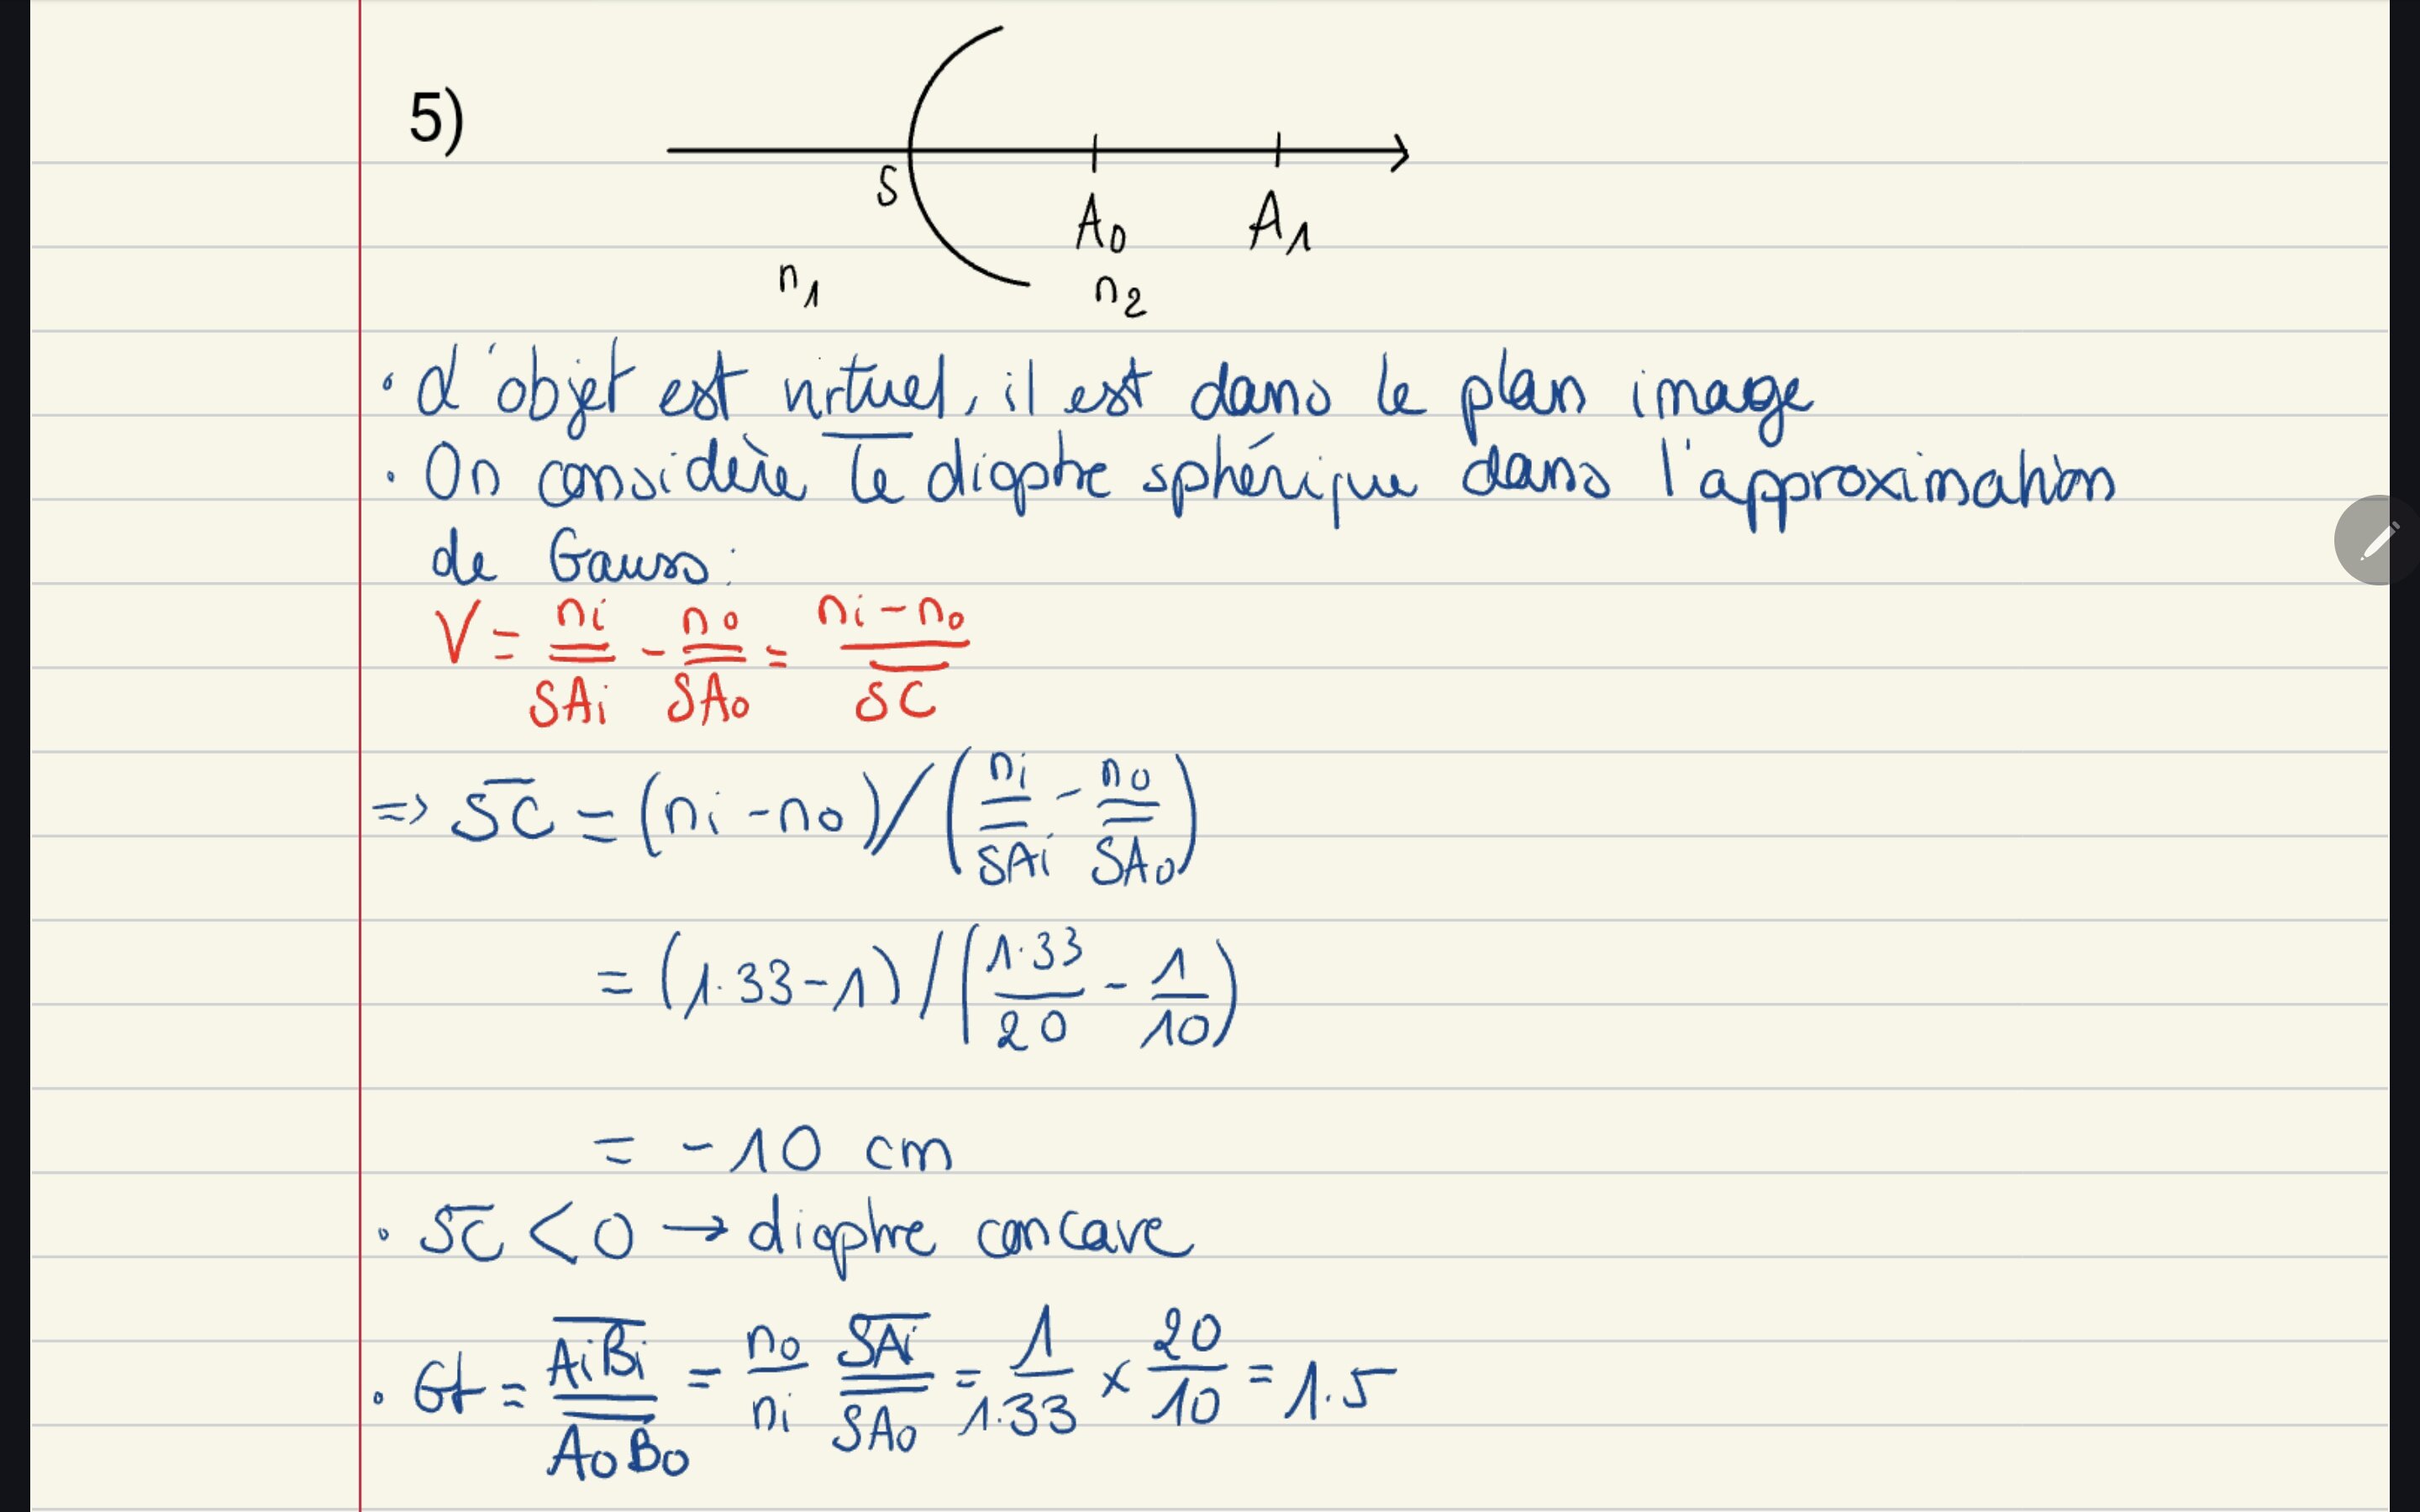 5)
S
A0
A1
n1
n2
• L'objet est virtuel, il est dans le plan image
• On considère le dioptre sphérique dans l'approximation
de Gauss:
V = ni/S̅A̅i̅ - no/S̅A̅o̅ = (ni - no)/S̅C̅
=> S̅C̅ = (ni - no) / (ni/S̅A̅i̅ - no/S̅A̅o̅)
= (1.33 - 1) / (1.33/20 - 1/10)
= -10 cm
• S̅C̅ < 0 → dioptre concave
• Gt = A̅i̅B̅i̅/A̅o̅B̅o̅ = no/ni S̅A̅i̅/S̅A̅o̅ = 1/1.33 × 20/10 = 1.5